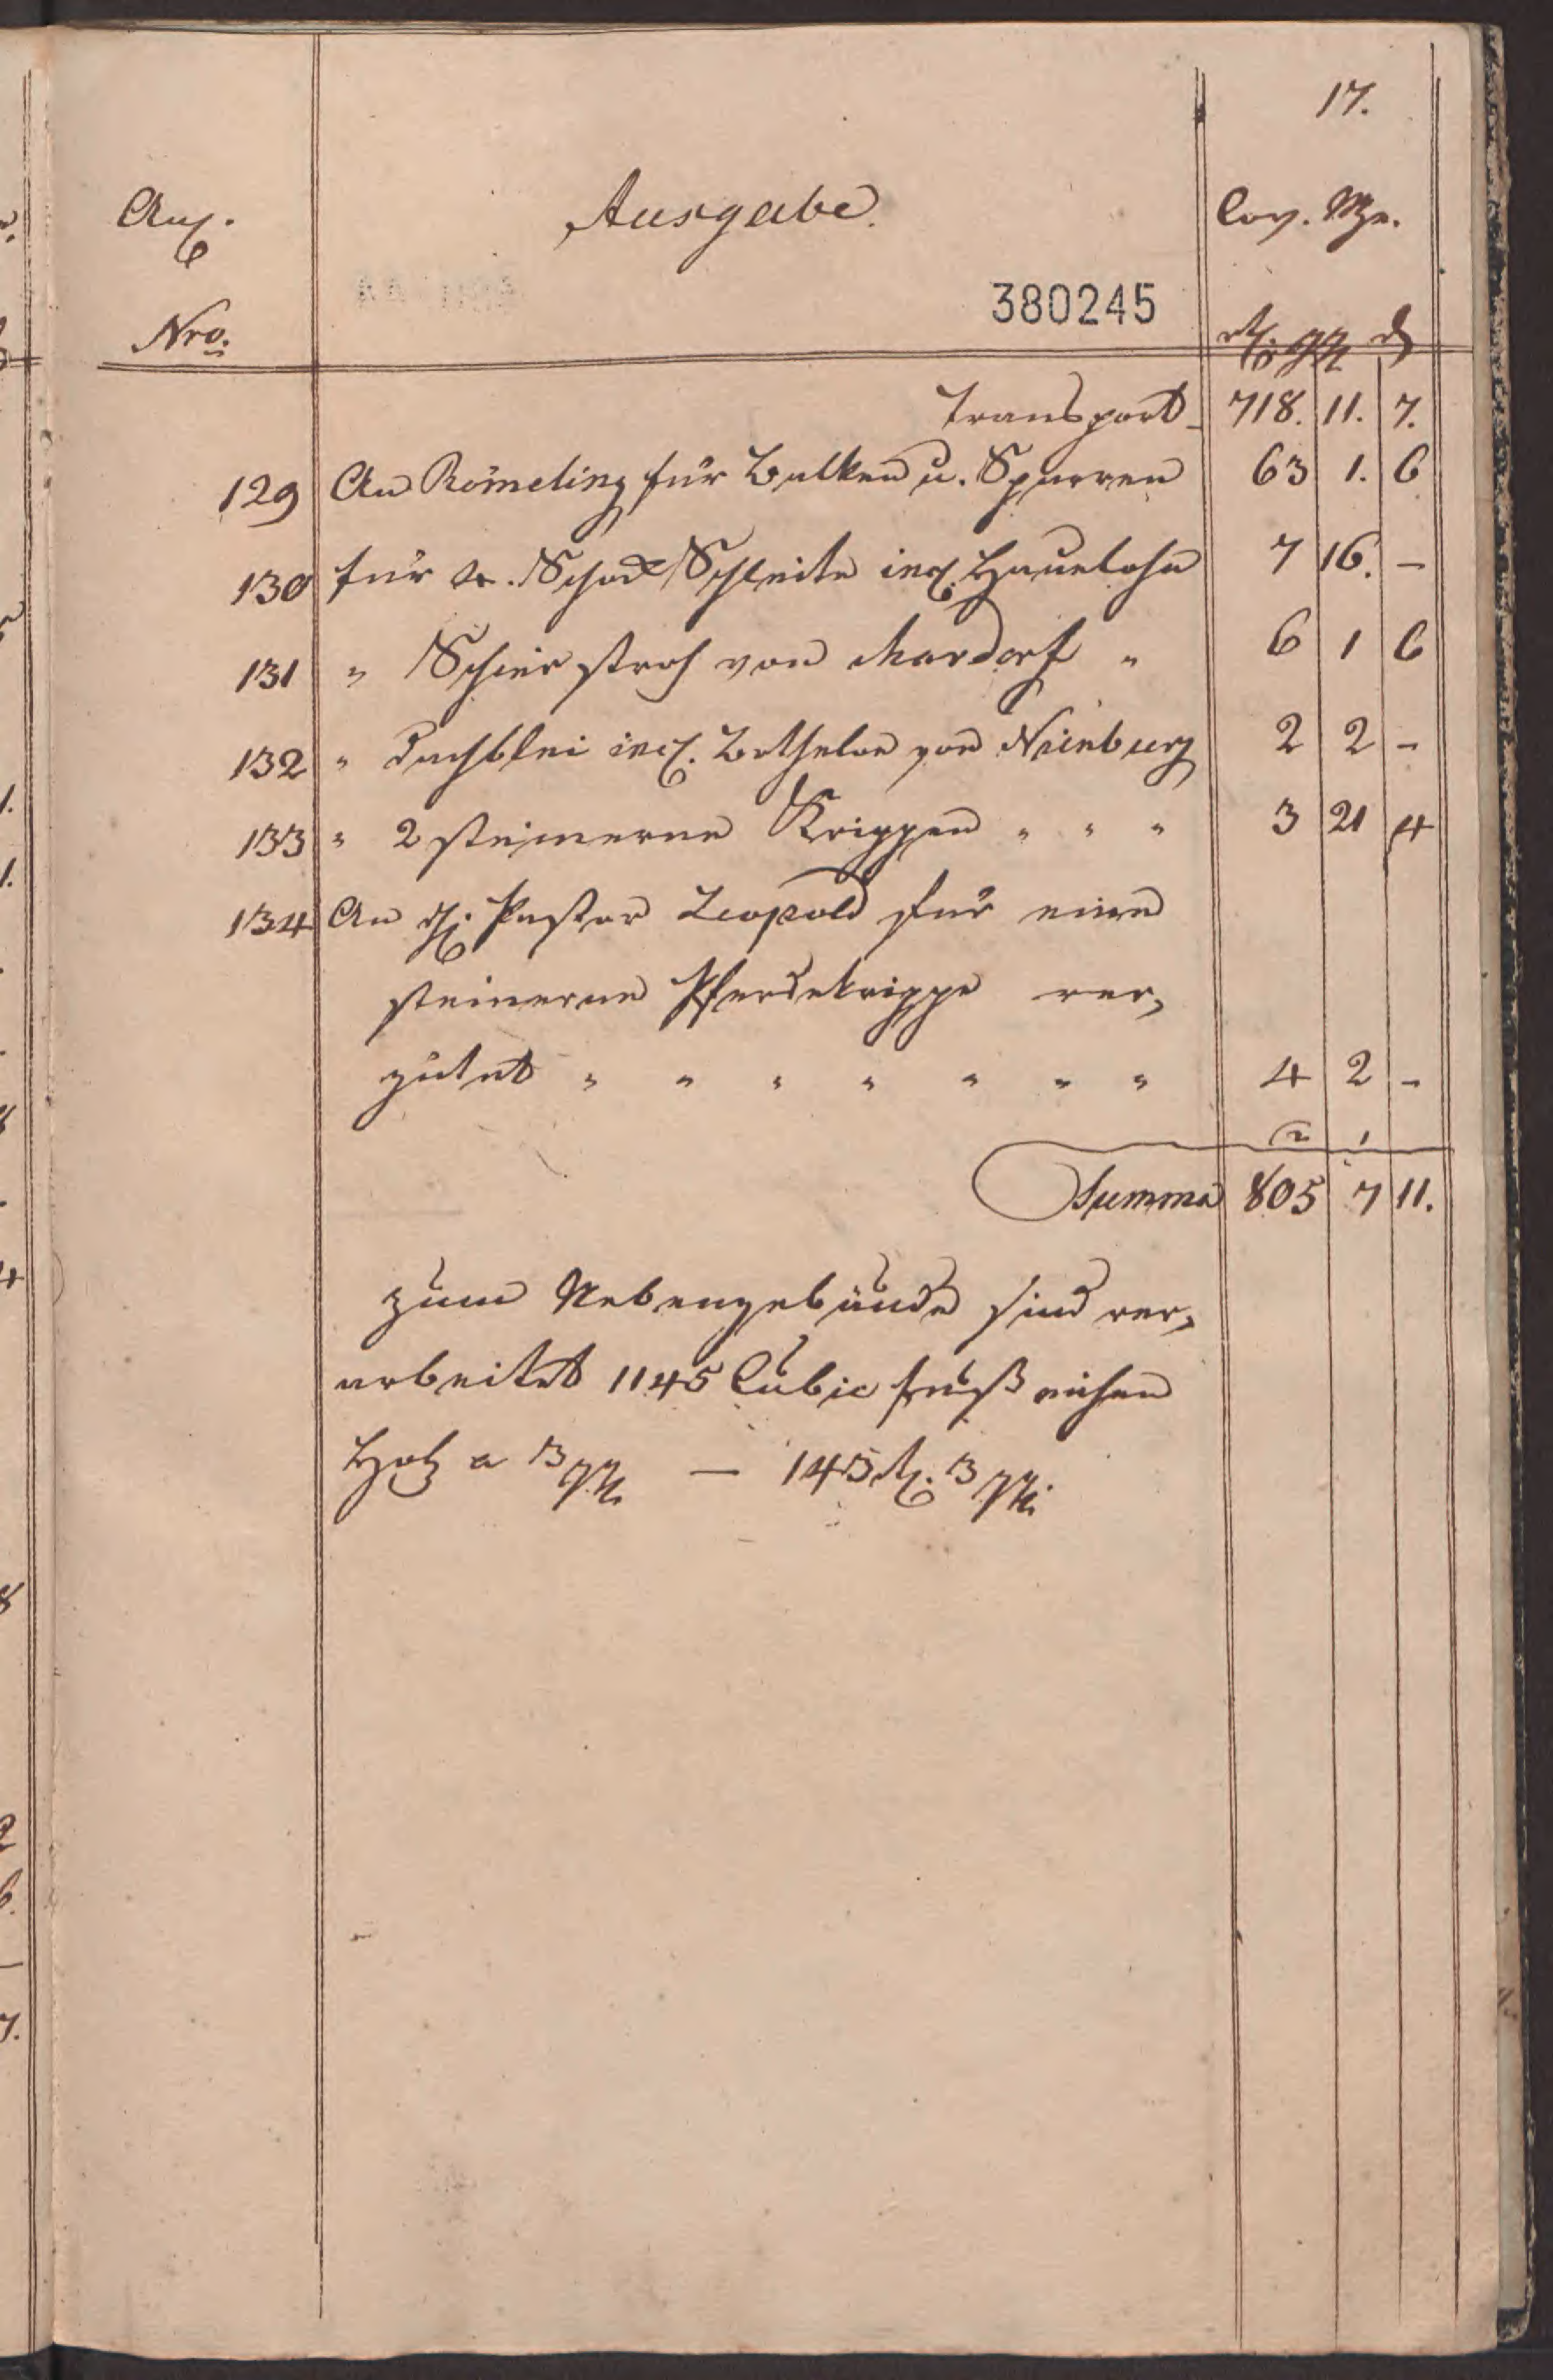 17.
Anl. Ausgabe. Cass. Mze.
380245
Nro. rth. ggr. d
Transport 718. 11. 7.
129 An Römeling für Balken u. Sparren 63 1. 6
130 für Schock Schleite incl. Hauelohn 7 16. –
131 " Schier stroh von Mardorf " 6 1 6
132 " Dachblei incl. von Nienburg 2 2 –
133 " 2 steinerne Krippen " " " 3 21 4
134 An H. Pastor Leopold für eine
steinerne Pferdekrippe ver,
gütet " " " " " " " 4 2 –
2 1
Summa 805 7 11.
zum Nebengebäude sind ver,
arbeitet 1145 Cubic fuß eichen
Holz a 3 ggr. — 143 rth. 3 ggr.